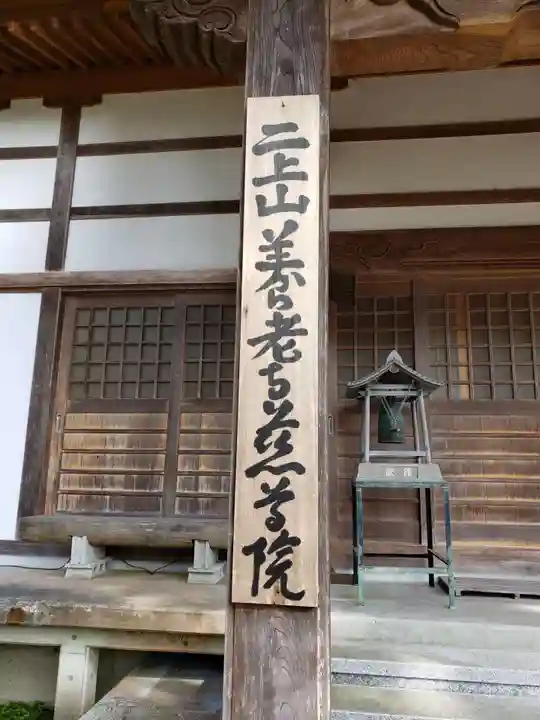 二上山養老寺慈尊院